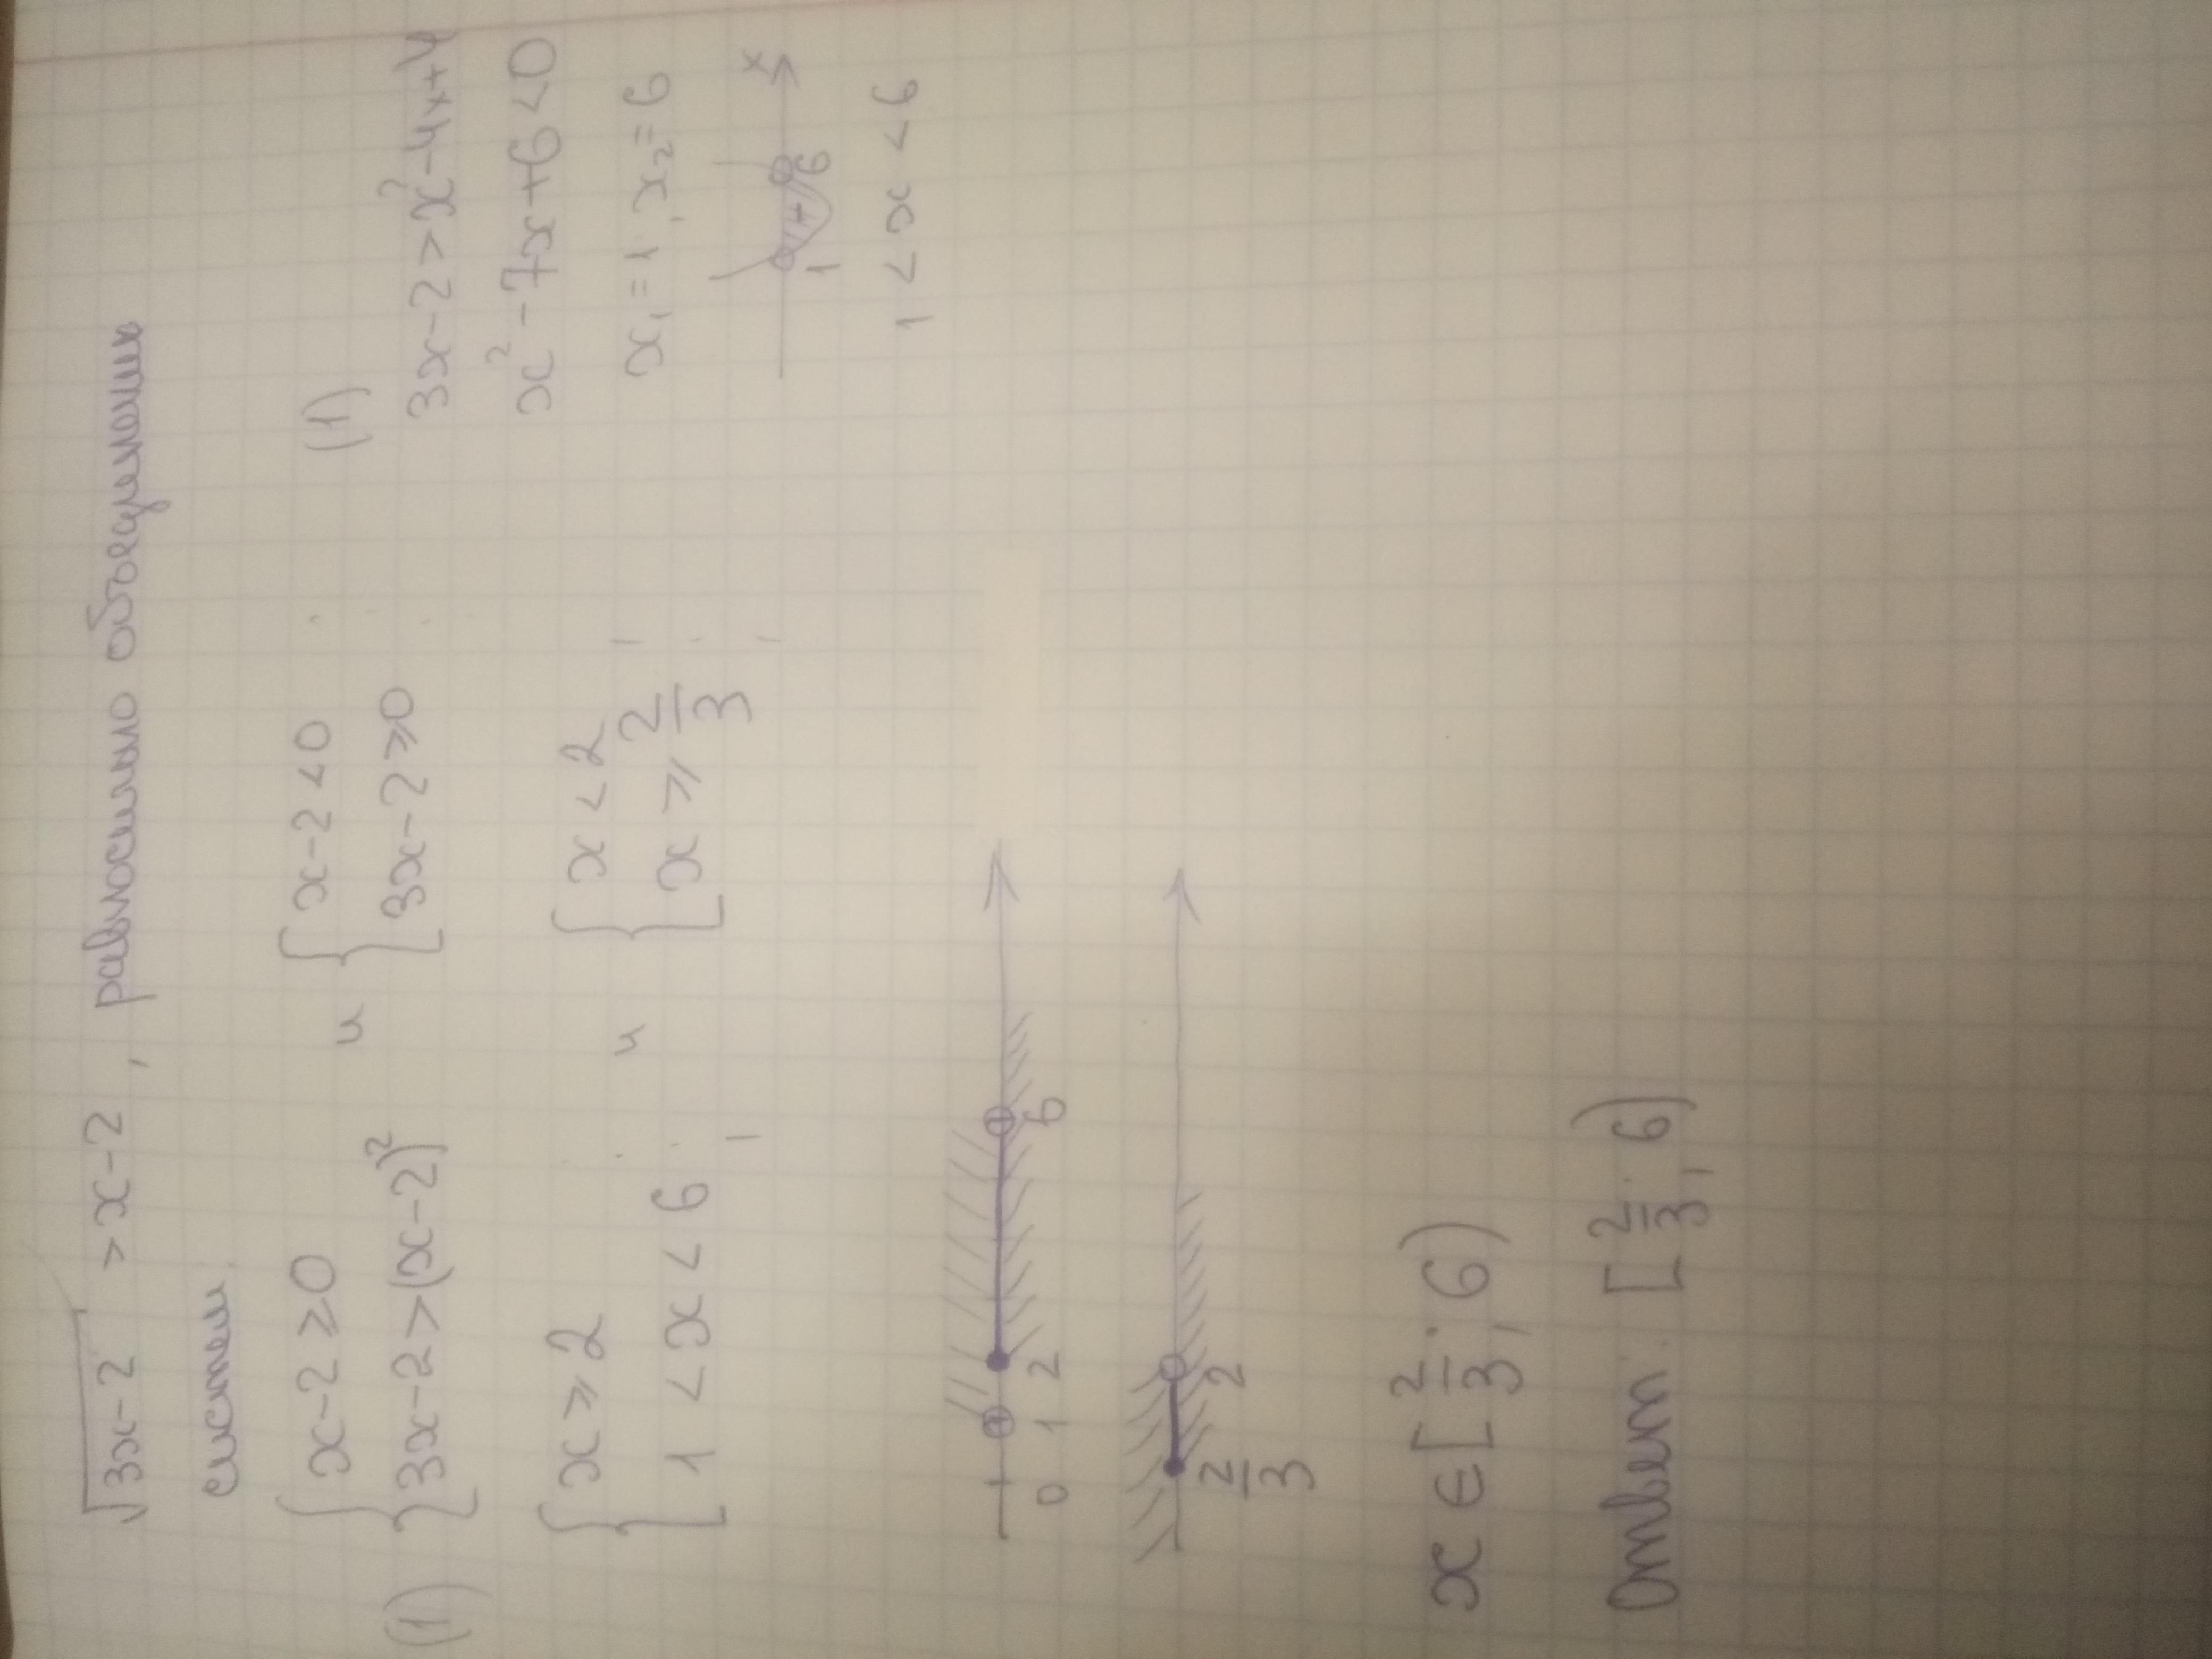 √(3x-2) > x-2, равносильно объединению
систем.
{ x-2≥0 и { x-2<0
(1) { 3x-2>(x-2)² { 3x-2≥0
{ x≥2 и { x<2
{ 1<x<6; { x≥2/3;
0 1 2 6
2/3 2
x∈[2/3; 6)
Ответ: [2/3; 6)
(1)
3x-2>x²-4x+4
x²-7x+6<0
x₁=1, x₂=6
1 6 x
1<x<6